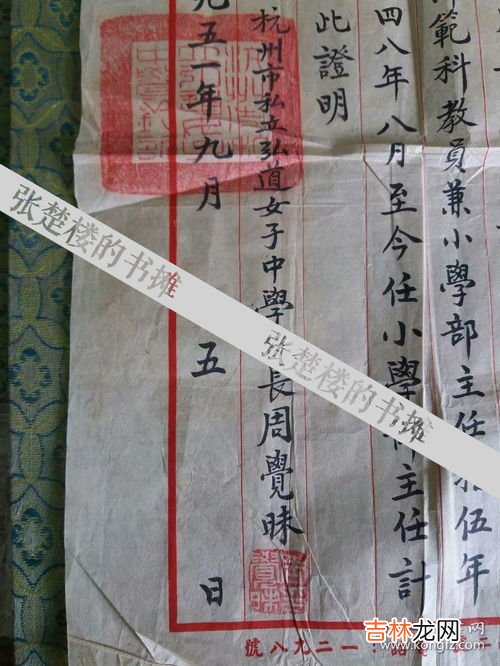 範科教員兼小學部主任
伍年
四八年八月至今任小學
主任計
此證明
杭州市私立弘道女子中學
長周覺昧
五一年九月
五
日
一二九八號
张楚楼的书摊
张楚楼的书摊
吉林龙网
WWW.KONGFZ.COM